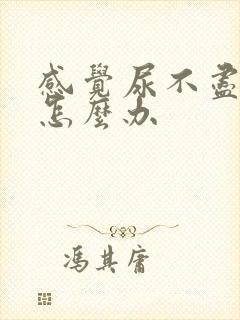 感覺尿不盡
怎麼办
馮其庸